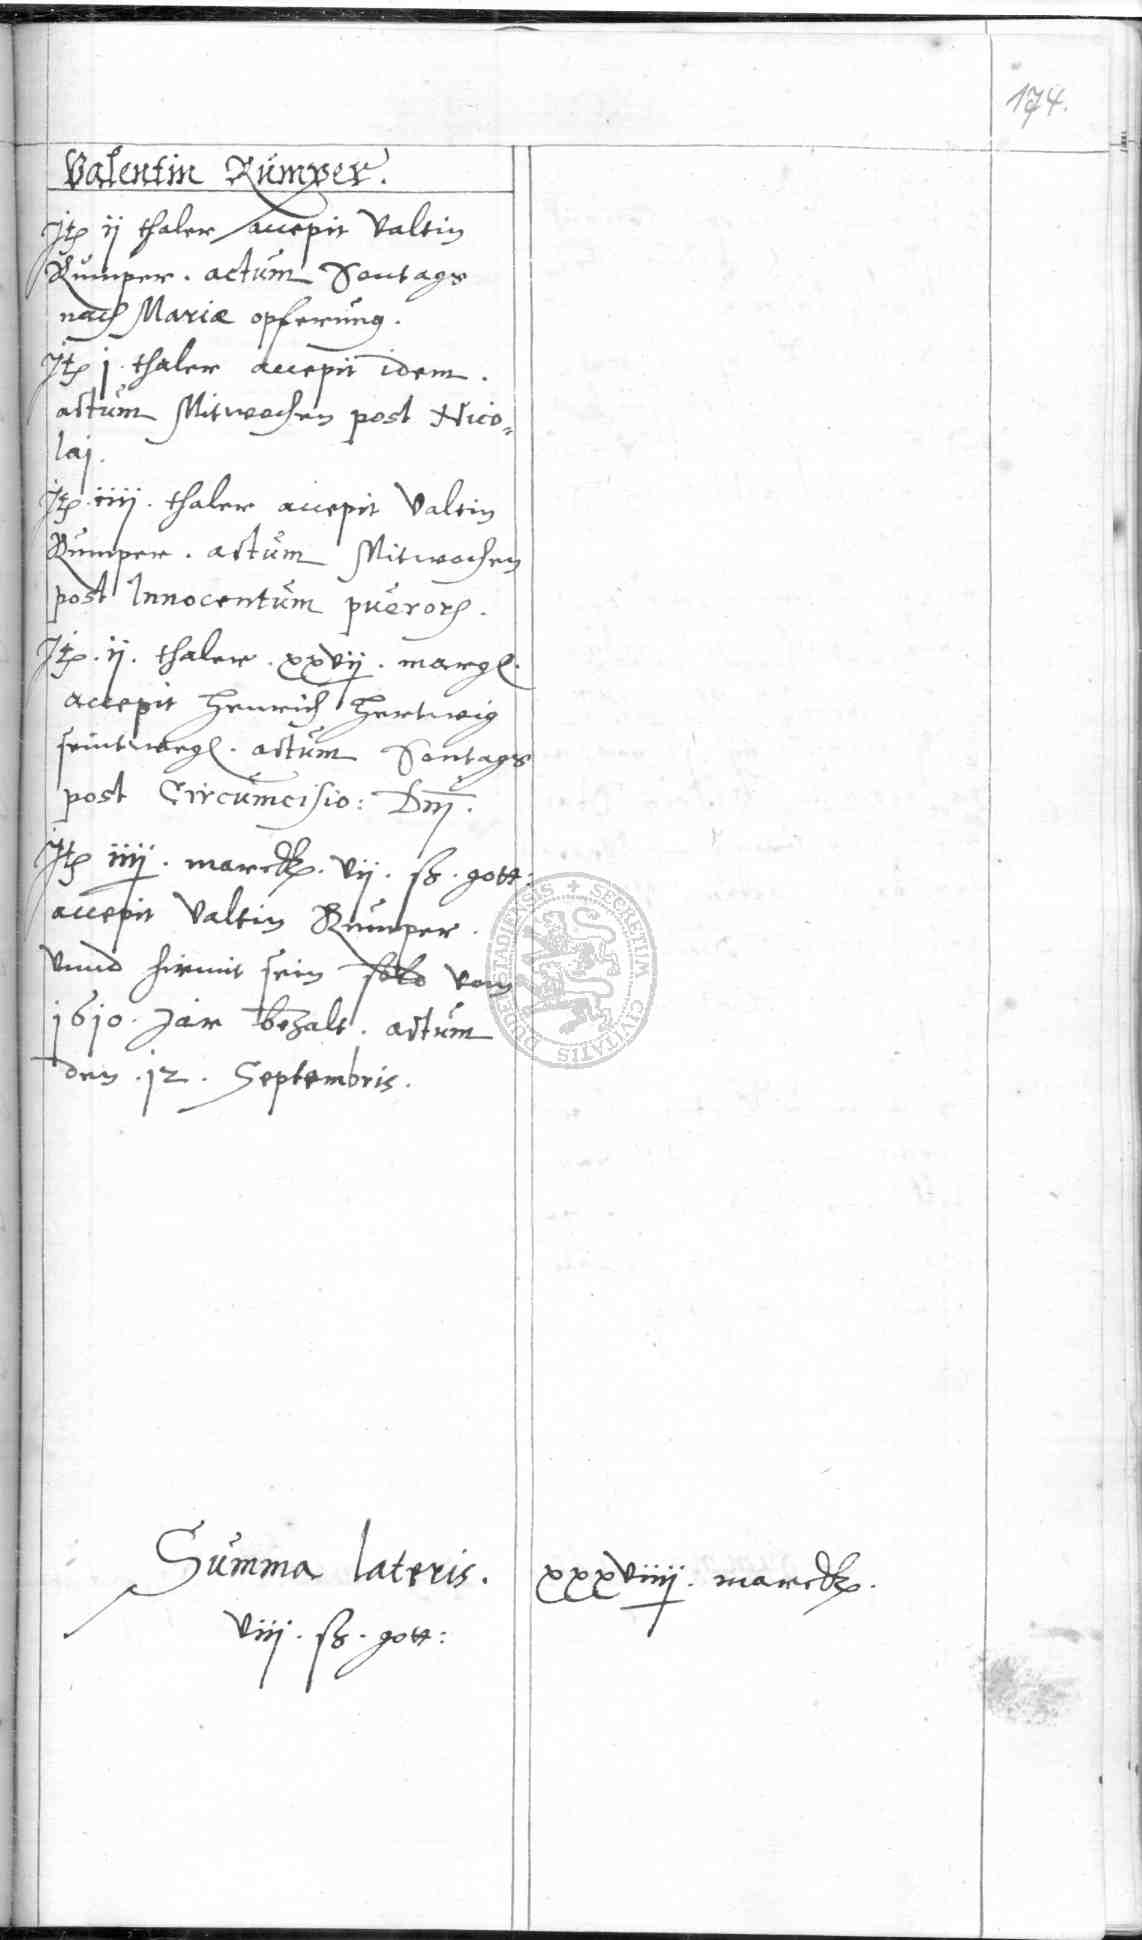 174.
Valentin Rumper.
Jtz ij thaler accepit Valtin
Rumper. actum Sontags
nach Mariæ opferung.
Jtz j thaler accepit idem.
actum Mitwochen post Nico=
laj.
Jtz. iiij. thaler accepit Valtin
Rumper. actum Mitwochen
post Innocentum pueror.
Jtz. ij. thaler. xxvij. margl.
accepit Henrich Hertwig
seintwegl. actum Sontags
post Circumcisio: Dnj.
Jtz iiij. marck. vij. ß. gott:
accepit Valtin Rumper.
vnnd hirmit sein solt vom
1610. Jar bezalt. actum
den. 12. Septembris.
DUDERSTADIENSIS + SECRETUM CIVITATIS
Summa lateris. xxxviiij. marck.
viij. ß. gott: